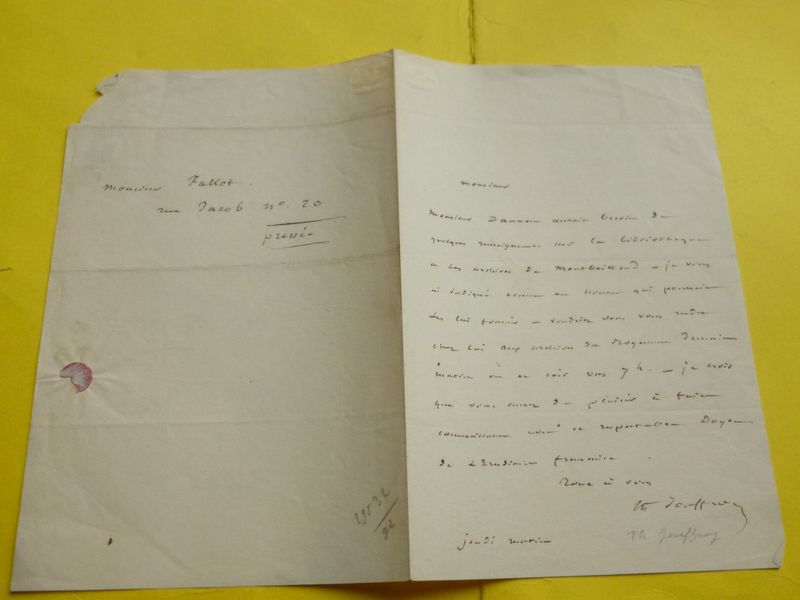 Monsieur Fallot.
rue Jacob. nº. 20
pressée
monsieur
Monsieur Daunou aurait besoin de
quelques renseignemens sur la bibliothèque
& les archives de Montbéliard – je vous
ai indiqué comme un homme qui pourrait
les lui fournir – voudriez vous vous rendre
chez lui aux archives du Royaume demain
matin ou ce soir vers 7 h. – je crois
que vous aurez du plaisir à faire
connaissance avec ce respectable Doyen
de l'Erudition française.
Tout à vous
Th Jouffroy
jeudi matin
Th. Jouffroy